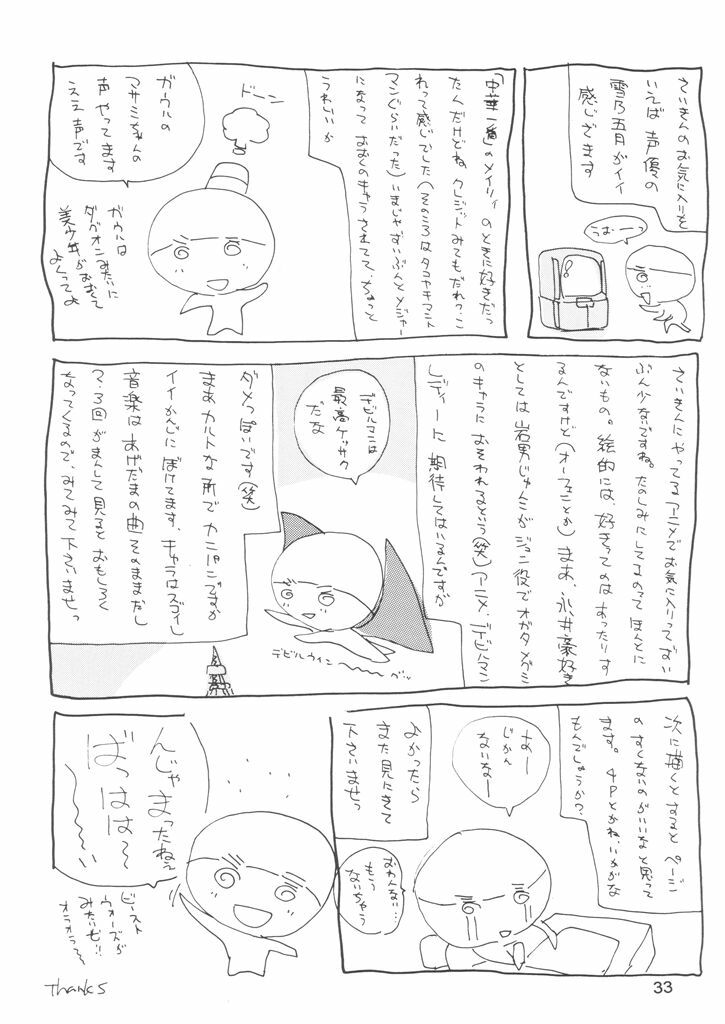 さいきんのお気に入りと
いえば 声優の
雪乃五月がイイ
感じざます
うおーっ
「中華一番」のメイリィのときに好きだっ
たんだけどね クレジットみてもだれ？こ
れって感じでした（そのころはタコヤキマント
マンぐらいだった）いまじゃずいぶんとメジャー
になって おおくのキャラされてて、ちょっと
うれしいか
ドーン
ガウルの
アサミちゃんの
声 やってます
ええ声です
ガウルは
ダグオンみたいに
美少年がおおくて
よくってよ
さいきんにやってるアニメでお気に入りってずい
ぶん少ないですね。たのしみにしてるのって ほんとに
ないもの。絵的には、好きってのはあったりす
るんですけど（オーフェンとか）まあ、永井豪好き
としては岩男じゅんこが ジュン役でオガタメグミ
のキャラに おそわれるという（笑）アニメ、デビルマン
レディーに 期待してはいるんですが
デビルマンは
最高ケッサク
だな
ダメっぽいです（笑）
まあ カルトな所で カンパニですか
イイかんじに ぼけてます、キャラはスゴイし
音楽は あげだまの曲そのままだし
2、3回がまんして見ると おもしろく
なってくるので、みてみて下さいませっ
デビルウイン〜〜〜グッ
次に描くとすると ページ
のすくないのがいいなと思って
ます。4Pとかね、いかがな
もんでしょうか？
あー
じかん
ないなー
よかったら
また見にきて
下さいませっ
おわんない…
もう
ないちゃう
んじゃまったねぇ
ばっはは〜
〜い
ビースト
ウォーズが
みたいぜ!!
オラオラ〜
Thanks
33